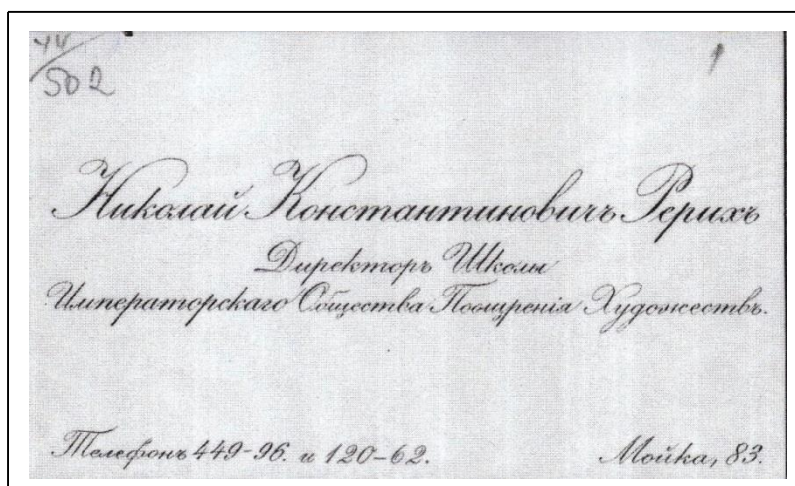 44/502
1
Николай Константиновичъ Рерихъ
Директоръ Школы
Императорскаго Общества Поощренія Художествъ.
Телефонъ 449-96. и 120-62. Мойка, 83.